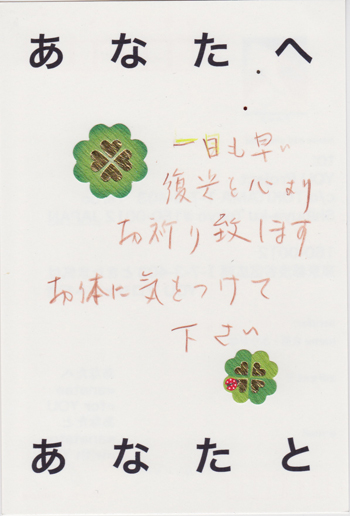 あなたへ
一日も早い
復光を心より
お祈り致します
お体に気をつけて
下さい
あなたと